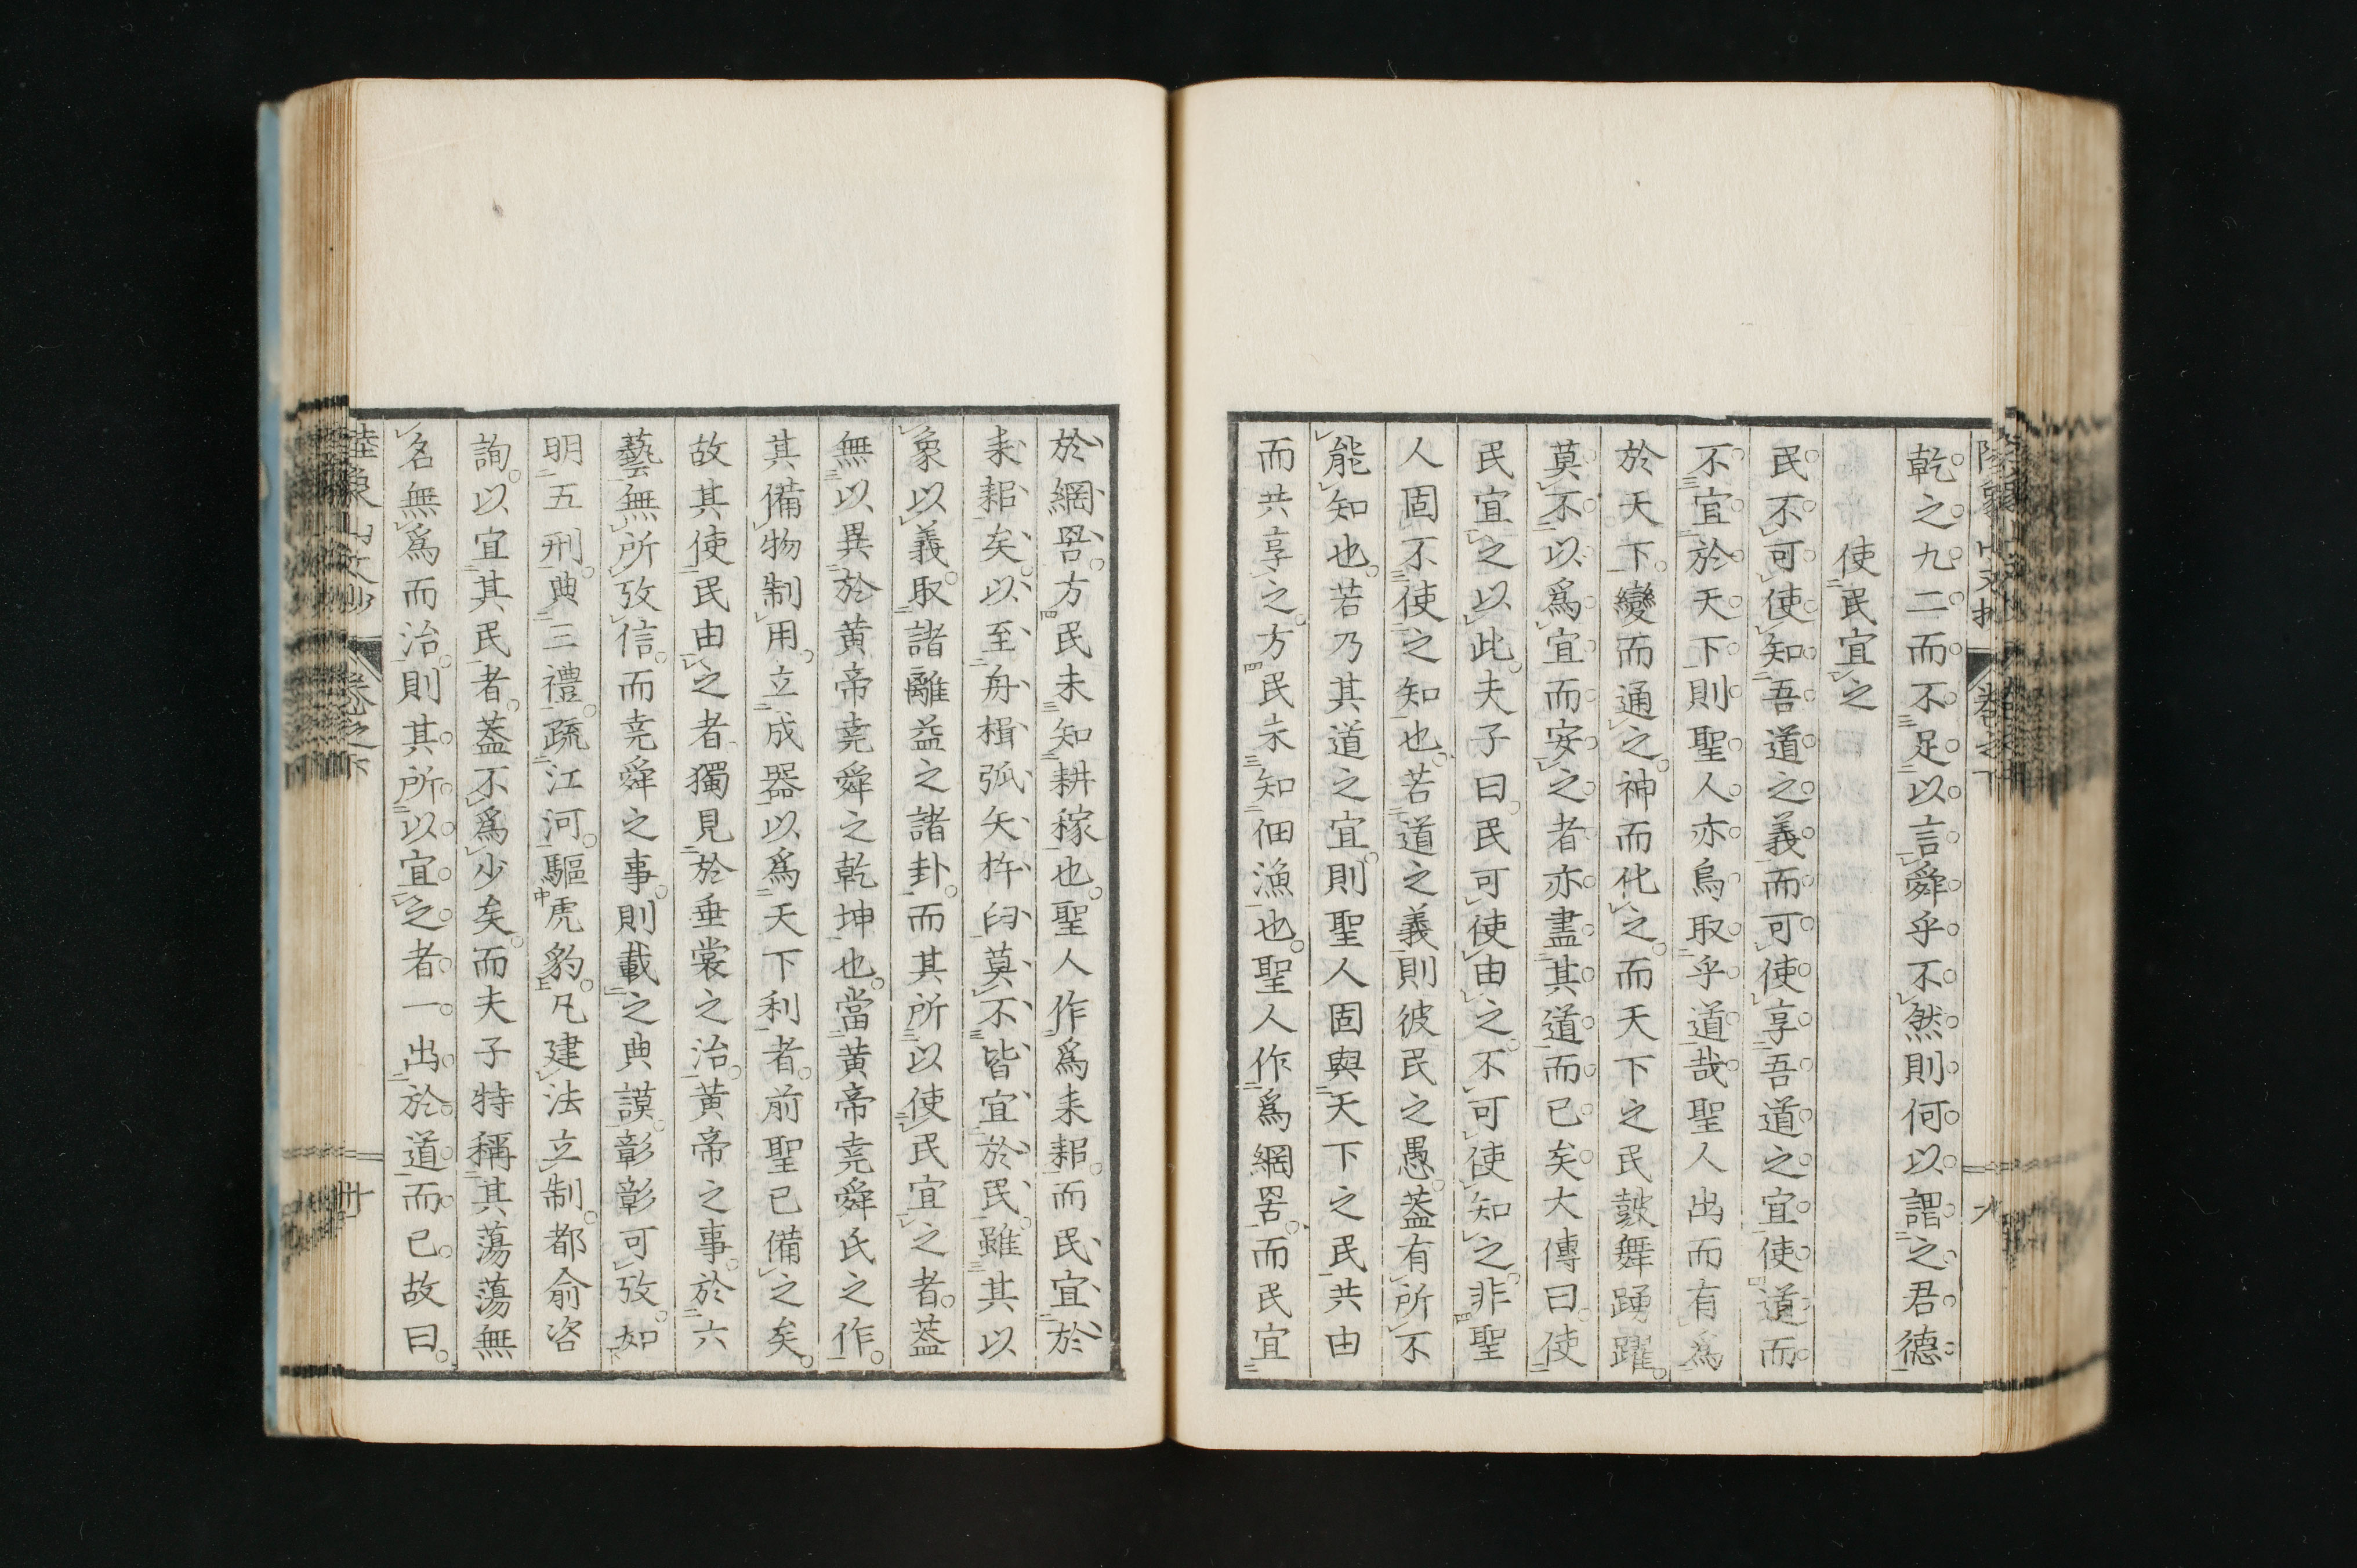 乾之九二而不足以言舜乎不然則何以謂之君德
使民宜之
民不可使知吾道之義而可使享吾道之宜使道而
不宜於天下則聖人亦烏取乎道哉聖人出而有爲
於天下變而通之神而化之而天下之民鼓舞踴躍
莫不以爲宜而安之者亦盡其道而已矣大傳曰使
民宜之以此夫子曰民可使由之不可使知之非聖
人固不使之知也若道之義則彼民之愚蓋有所不
能知也若乃其道之宜則聖人固與天下之民共由
而共享之方民未知佃漁也聖人作爲網罟而民宜
於網罟方民未知耕稼也聖人作爲耒耜而民宜於
耒耜矣以至舟楫弧矢杵臼莫不皆宜於民雖其以
象以義取諸離益之諸卦而其所以使民宜之者蓋
無以異於黄帝堯舜之乾坤也當黄帝堯舜氏之作
其備物制用立成器以爲天下利者前聖已備之矣
故其使民由之者獨見於垂裳之治黄帝之事於六
藝無所攷信而堯舜之事則載之典謨彰彰可攷如
明五刑典三禮疏江河驅虎豹凡建法立制都俞咨
詢以宜其民者蓋不爲少矣而夫子特稱其蕩蕩無
名無爲而治則其所以宜之者一出於道而已故曰
陸象山文抄 卷之下 卅